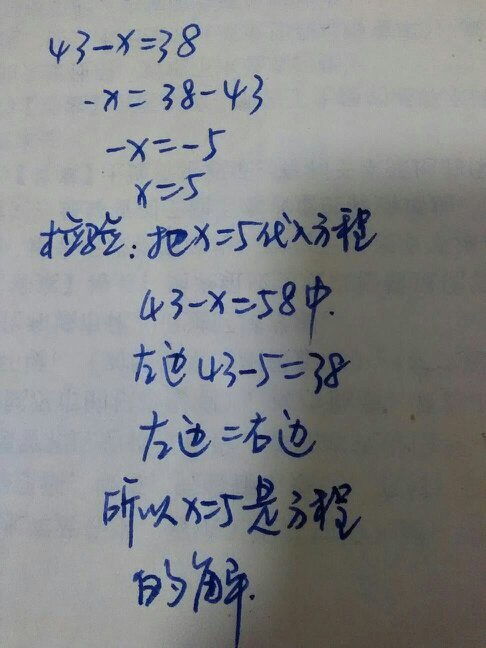 43-x=38
-x=38-43
-x=-5
x=5
检验:把x=5代入方程
43-x=58中.
左边43-5=38
左边=右边
所以x=5是方程
的解.